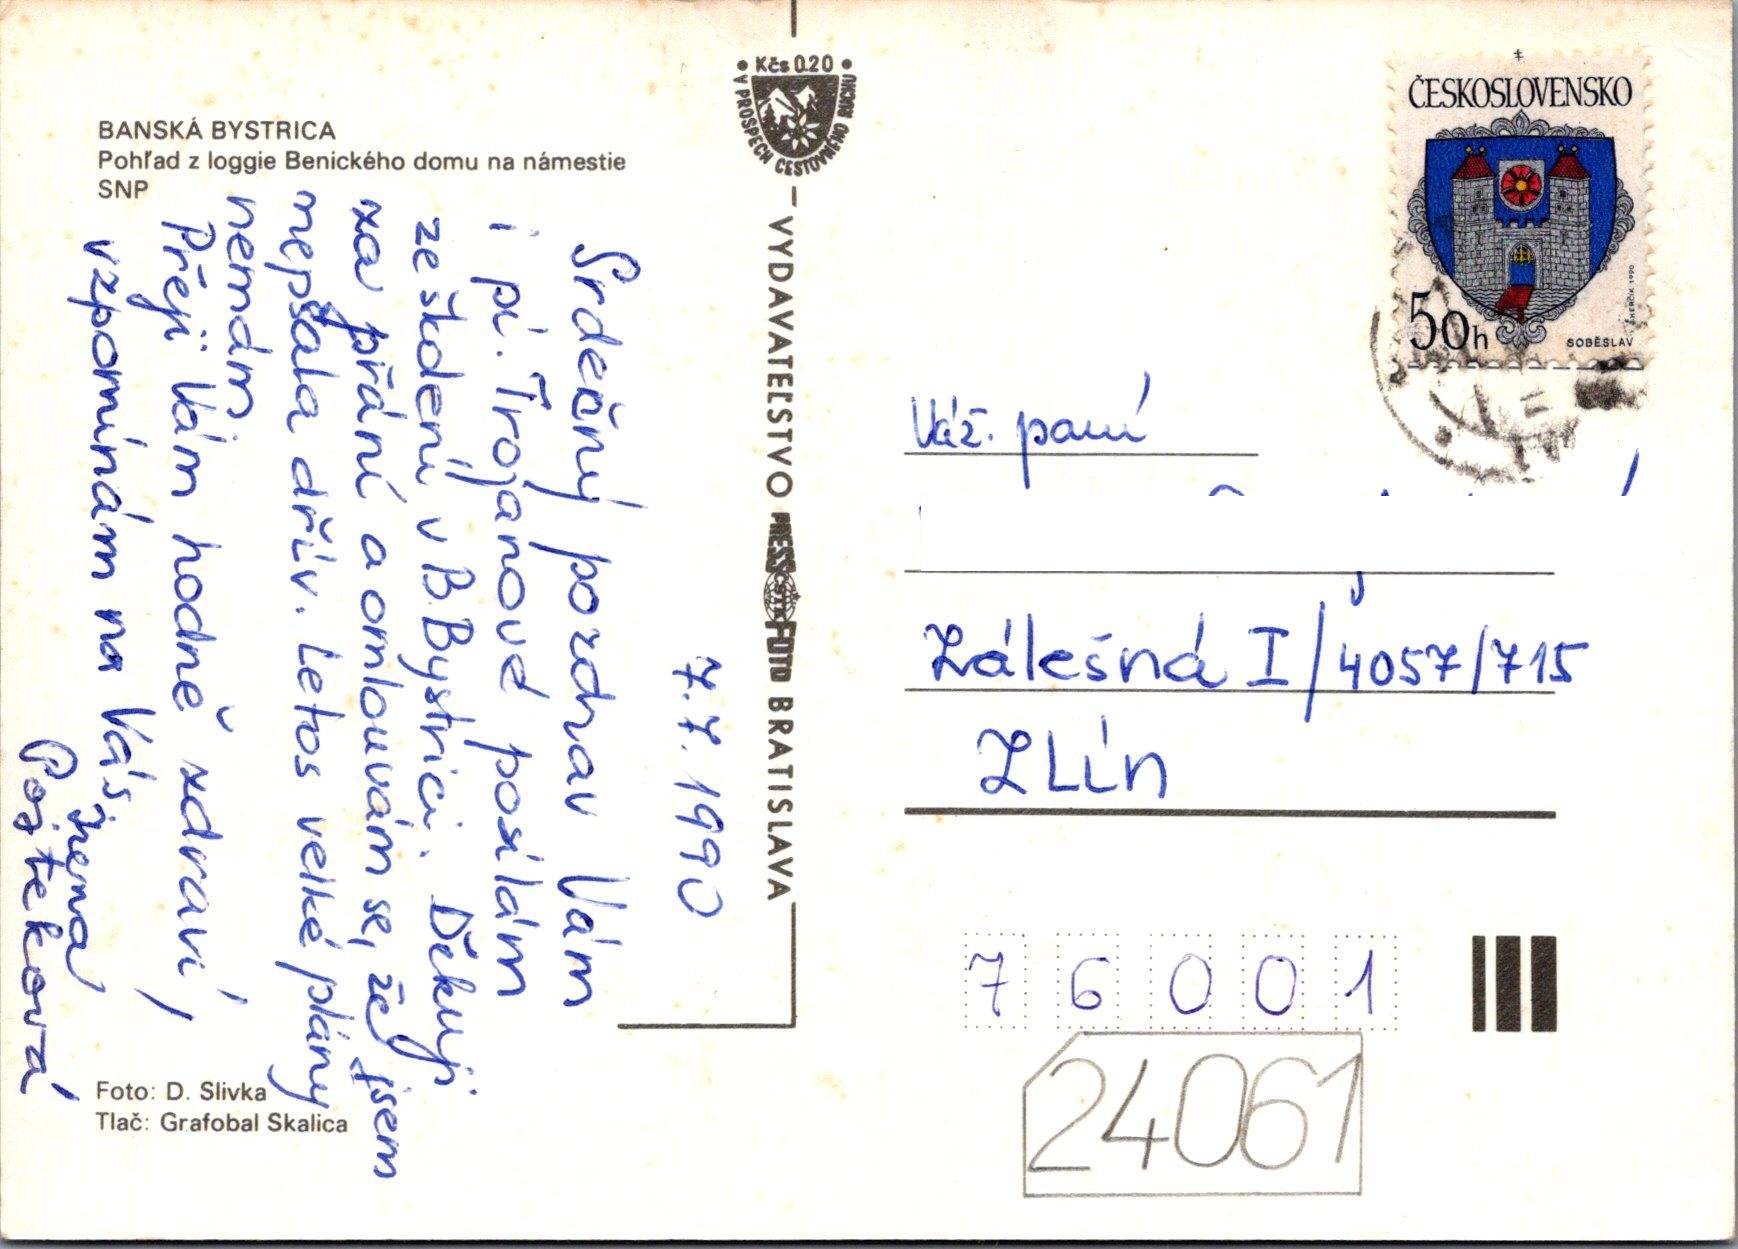 BANSKÁ BYSTRICA
Pohľad z loggie Benického domu na námestie
SNP
7.7.1990
Srdečný pozdrav Vám
i pí. Trojanové posílám
ze školení v B. Bystrici. Děkuji
za přání a omlouvám se, že jsem
nepsala dřív. Letos velké plány
nemám
Přeji Vám hodně zdraví,
vzpomínám na Vás,
Irena
Pojteková
Foto: D. Slivka
Tlač: Grafobal Skalica
Kčs 0.20
V PROSPECH CESTOVNÉHO RUCHU
VYDAVATEĽSTVO PRESSFOTO BRATISLAVA
ČSTK
ČESKOSLOVENSKO
50h
SOBĚSLAV
Váž. paní
Zálešná I/4057/715
ZLín
76001
24061